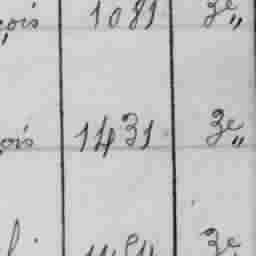 çois 1081 3e „
ois 1431 3e „
3e